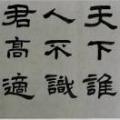 天下誰
人不識
君高適